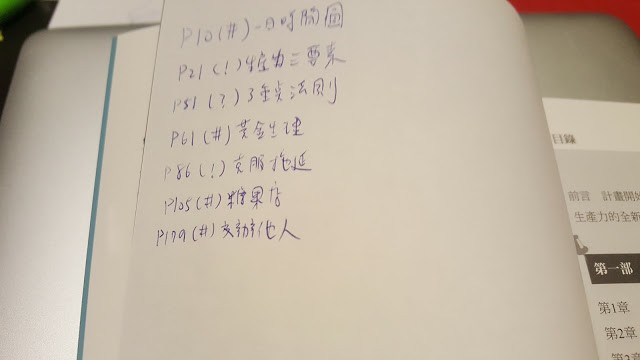 P10(#)一日時間圖
P21(!)生產力三要素
P51(?)3種法則
P61(#)黃金生理
P86(!)克服拖延
P105(#)糖果店
P179(#)交辦他人
目錄
前言 計畫開始
生產力的全新
第一部
第1章
第2章
第3章